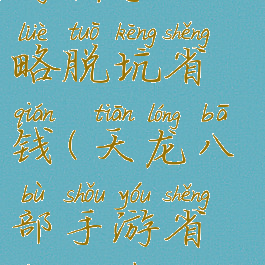 lüè tuō kēng shěng
略脱坑省
qián tiān lóng bā
钱(天龙八
bù shǒu yóu shěng
部手游省